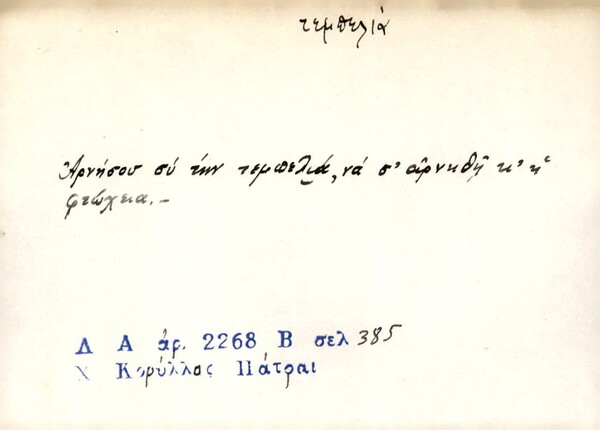 τεμπελιά
Ἀρνήσου σύ τήν τεμπελιά, νά σ' ἀρνηθῇ κ' ἡ
φτώχεια.-
Λ Α ἀρ. 2268 Β σελ 385
Χ Κορύλλος Πάτραι